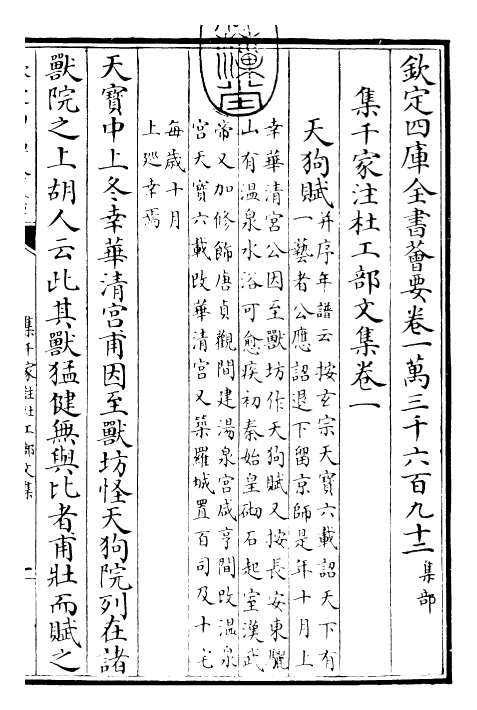 欽定四庫全書薈要卷一萬三千六百九十二集部
集千家注杜工部文集卷一
天狗賦并序年譜云按玄宗天寶六載詔天下有
一藝者公應詔退下留京師是年十月上
幸華清宮公因至獸坊作天狗賦又按長安東驪
山有溫泉水浴可愈疾初秦始皇砌石起室漢武
帝又加修飾唐貞觀間建湯泉宮咸亨間改溫泉
宮天寶六載改華清宮又築羅城置百司及十宅
每歲十月
上巡幸焉
天寶中上冬幸華清宮甫因至獸坊怪天狗院列在諸
獸院之上胡人云此其獸猛健無與比者甫壯而賦之
集千家註杜工部文集
一